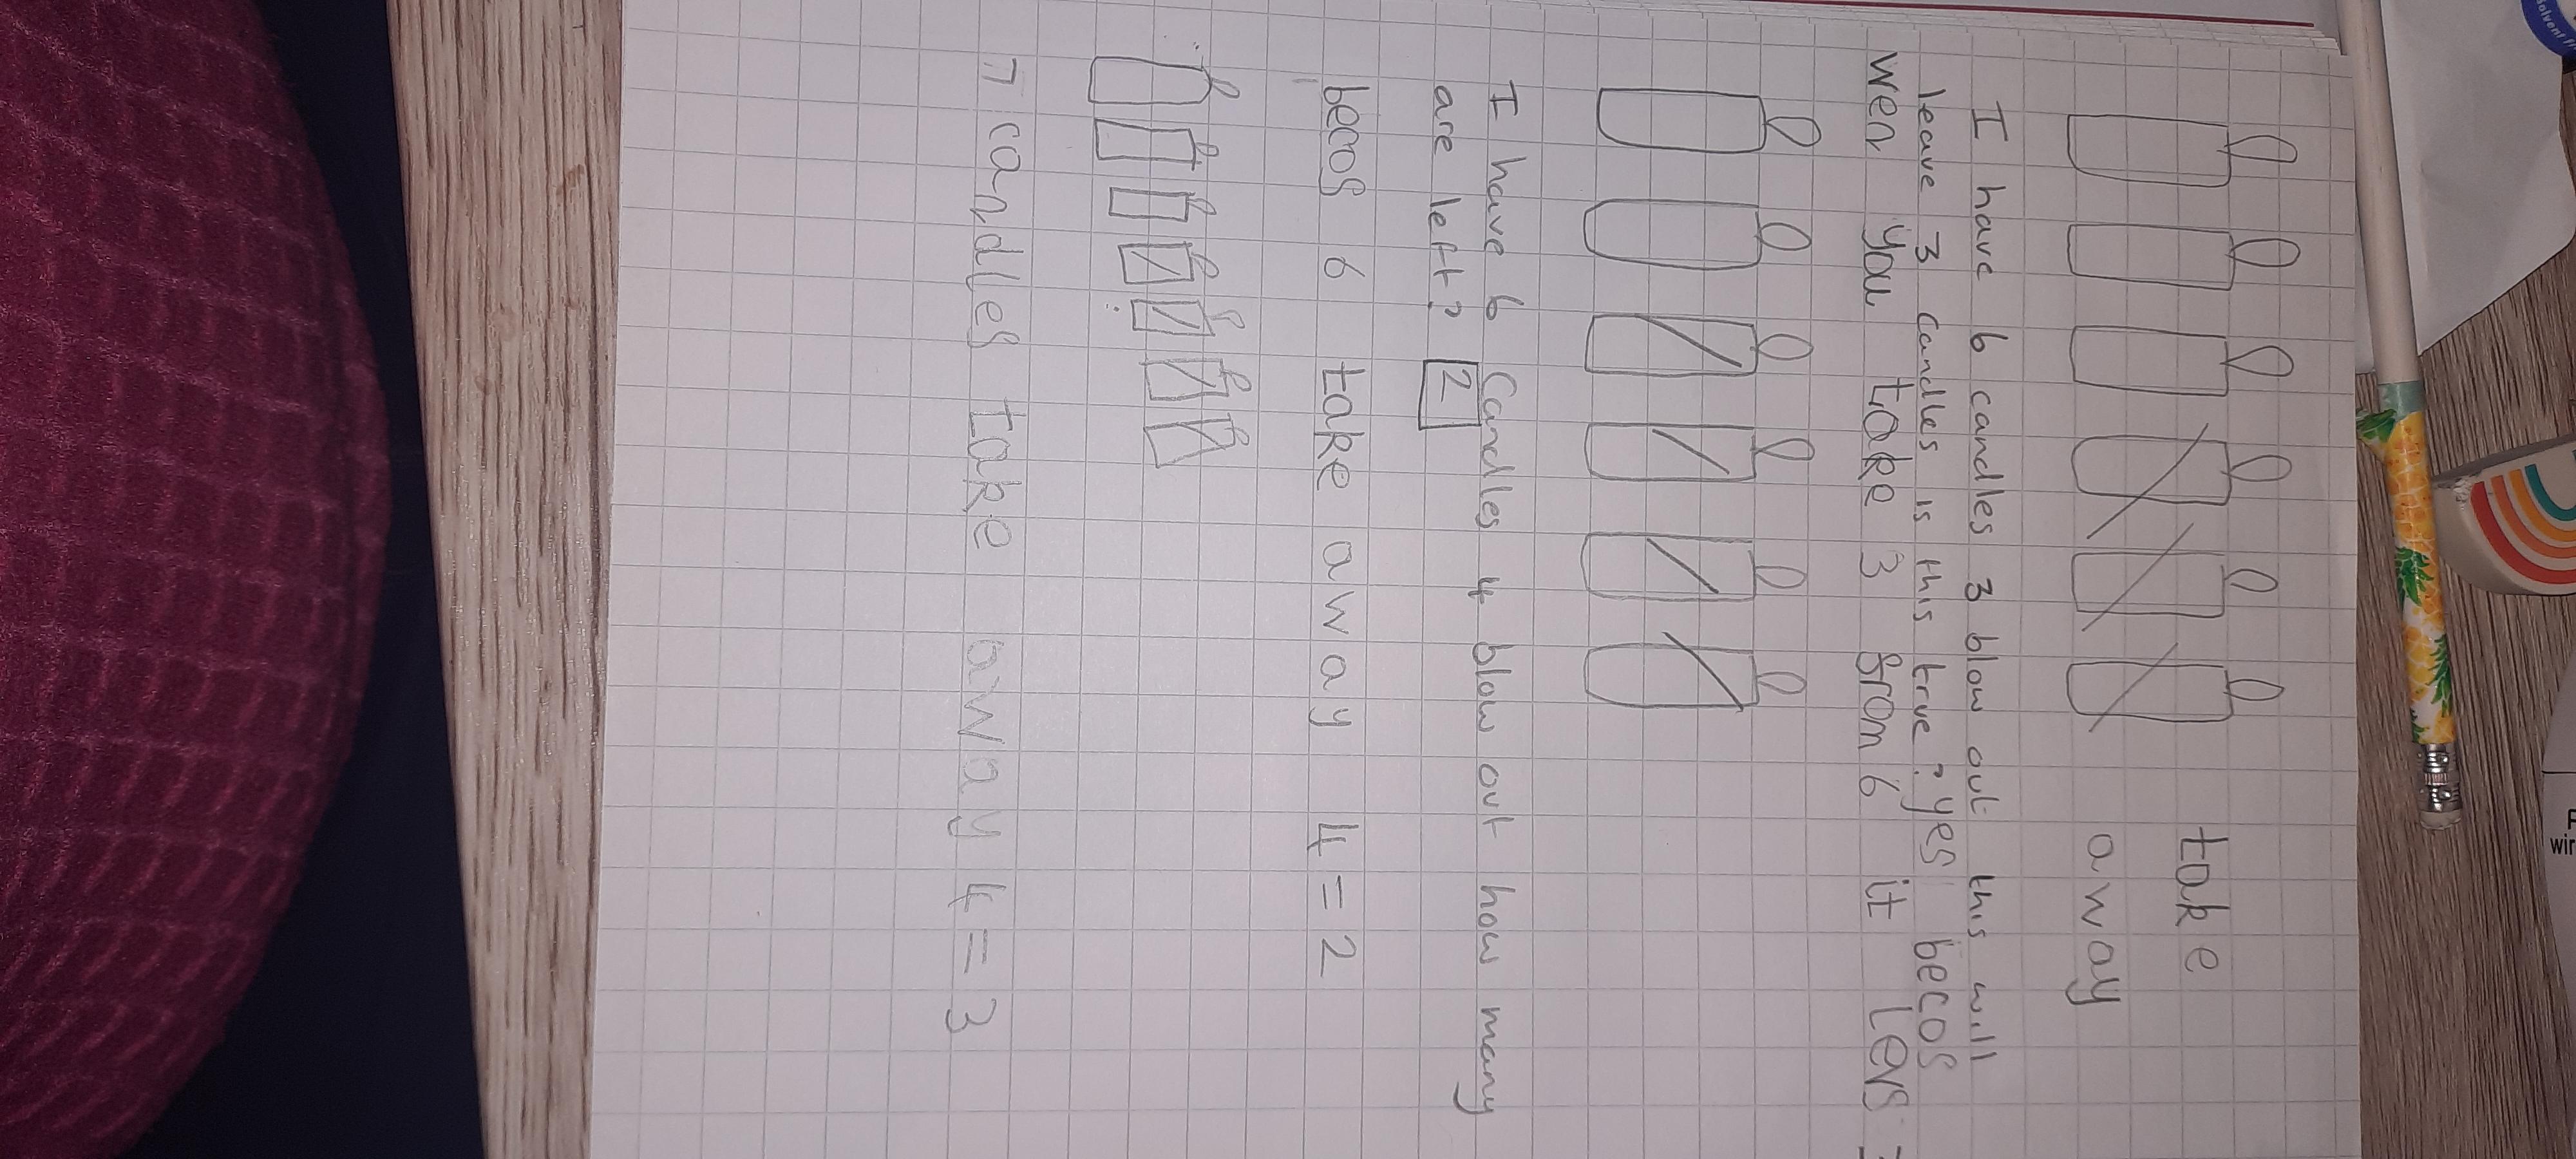 take
away
I have 6 candles 3 blow out this will
leave 3 candles is this true? yes becos
wen you take 3 from 6 it levs
I have 6 Candles 4 blow out how many
are left? 2
becos 6 take away 4 = 2
7 candles take away 4 = 3